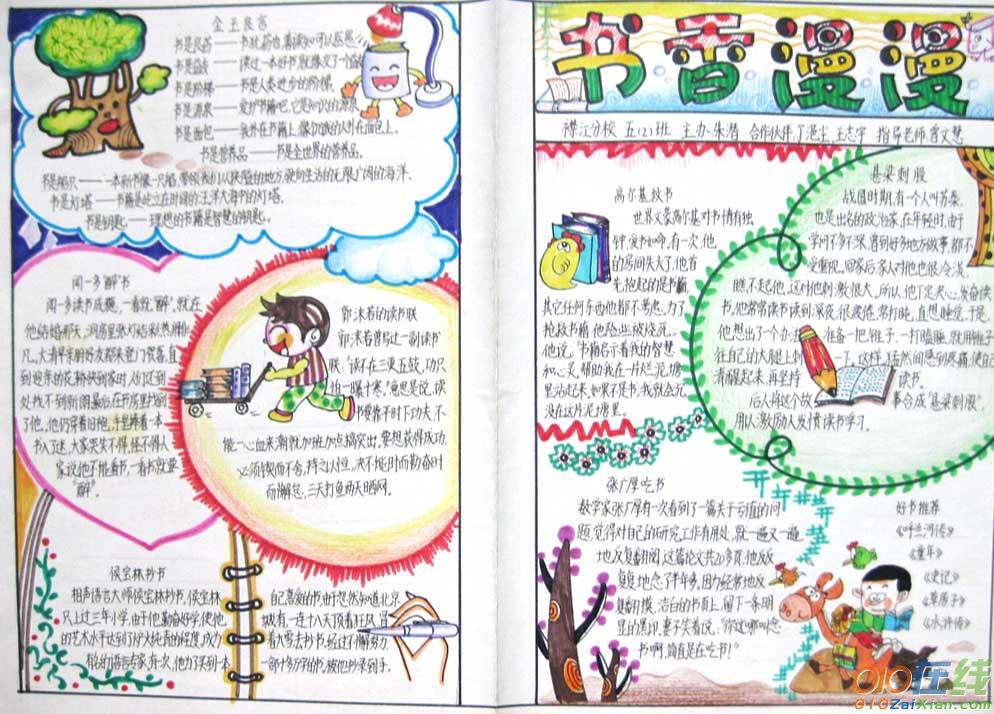 金玉良言
书是良药——书犹药也,善读之可以医愚
书是益友——读过一本好书,就像交了一个益友
书是阶梯——书是人类进步的阶梯
书是源泉——爱护书籍吧,它是知识的源泉
书是面包——我扑在书籍上,像饥饿的人扑在面包上。
书是营养品——书是全世界的营养品。
书是船只——一本新书像一只船,带领我们从狭隘的地方,驶向生活的无限广阔的海洋.
书是灯塔——书籍是屹立在时间的汪洋大海中的灯塔.
书是钥匙——理想的书籍是智慧的钥匙。
闻一多"醉"书
闻一多读书成瘾,一看就"醉",就在
他结婚那天,洞房里张灯结彩,热闹非
凡。大清早亲朋好友都来登门贺喜,直
到迎亲的花轿快到家时,人们还到
处找不到新郎,最后在书房里找到
了他。他仍穿着旧袍,手里捧着一本
书入了迷,大家哭笑不得,怪不得人
家说他不能看书,一看书就要
"醉"。
郭沫若的读书联
郭沫若曾写过一副读书
联:"读不在三更五鼓,功只
怕一曝十寒。"意思是说,读
书要靠平时下功夫,不
能一心血来潮就加班加点搞突出,要想获得成功,
必须锲而不舍,持之以恒。决不能时而勤奋时
而懈怠,三天打鱼两天晒网。
侯宝林抄书
相声语言大师侯宝林抄书,侯宝林
只上过三年小学,由于他勤奋好学,使他
的艺术水平达到了炉火纯青的程度,成为
有名的语言专家。有次,他为了买到一本
自己喜爱的书,
城看,一连十八天顶着狂风,冒
着大雪去抄书,经过不懈努力,
一部十多万字的书,被他抄录到手。
书香漫漫
襟江分校 五(2)班 主办:朱潜 合作伙伴:丁滟尘、王志宇 指导老师:曹文慧
高尔基救书
世界文豪高尔基对书情有独
钟,爱书如命,有一次,他
的房间失火了,他首
先抱起的是书籍,
其它任何东西他都不考虑。为了
抢救书籍,他险些被烧死。
他说:"书籍启示着我的智慧
和心灵,帮助我在一片烂泥塘
里站起来,如果不是书,我就会沉
没在这片泥塘里。
悬梁刺股
战国时期,有一个人叫苏秦,
也是出名的政治家。在年轻时,由于
学问不多不深,曾到好多地方做事,都不
受重视。回家后,家人对他也很冷淡,
瞧不起他。这对他刺激很大。所以,他下定决心,发奋读
书。他常常读书读到深夜,很疲倦,常打盹,直想睡觉,于是,
他想出了一个办法,准备一把锥子,一打瞌睡,就用锥子
往自己的大腿上刺一下。这样,猛然间感到疼痛,使自己
清醒起来,再坚持读书。
后人将这个故事合成"悬梁刺股",
用以激励人发愤读书学习。
张广厚吃书
数学家张广厚有一次看到了一篇关于亏值的问
题,觉得对自己的研究工作有用处,就一遍又一遍
地反复翻阅,这篇论文共20多页,他反反
复复地念了半年多。因为经常地反
复翻摸,洁白的书页上,留下一条明
显的黑印,妻子笑着说:"你这哪叫念
书啊,简直是在吃书!"
好书推荐
《呼兰河传》
《童年》
《史记》
《草房子》
《水浒传》
010在线
010ZaiXian.com